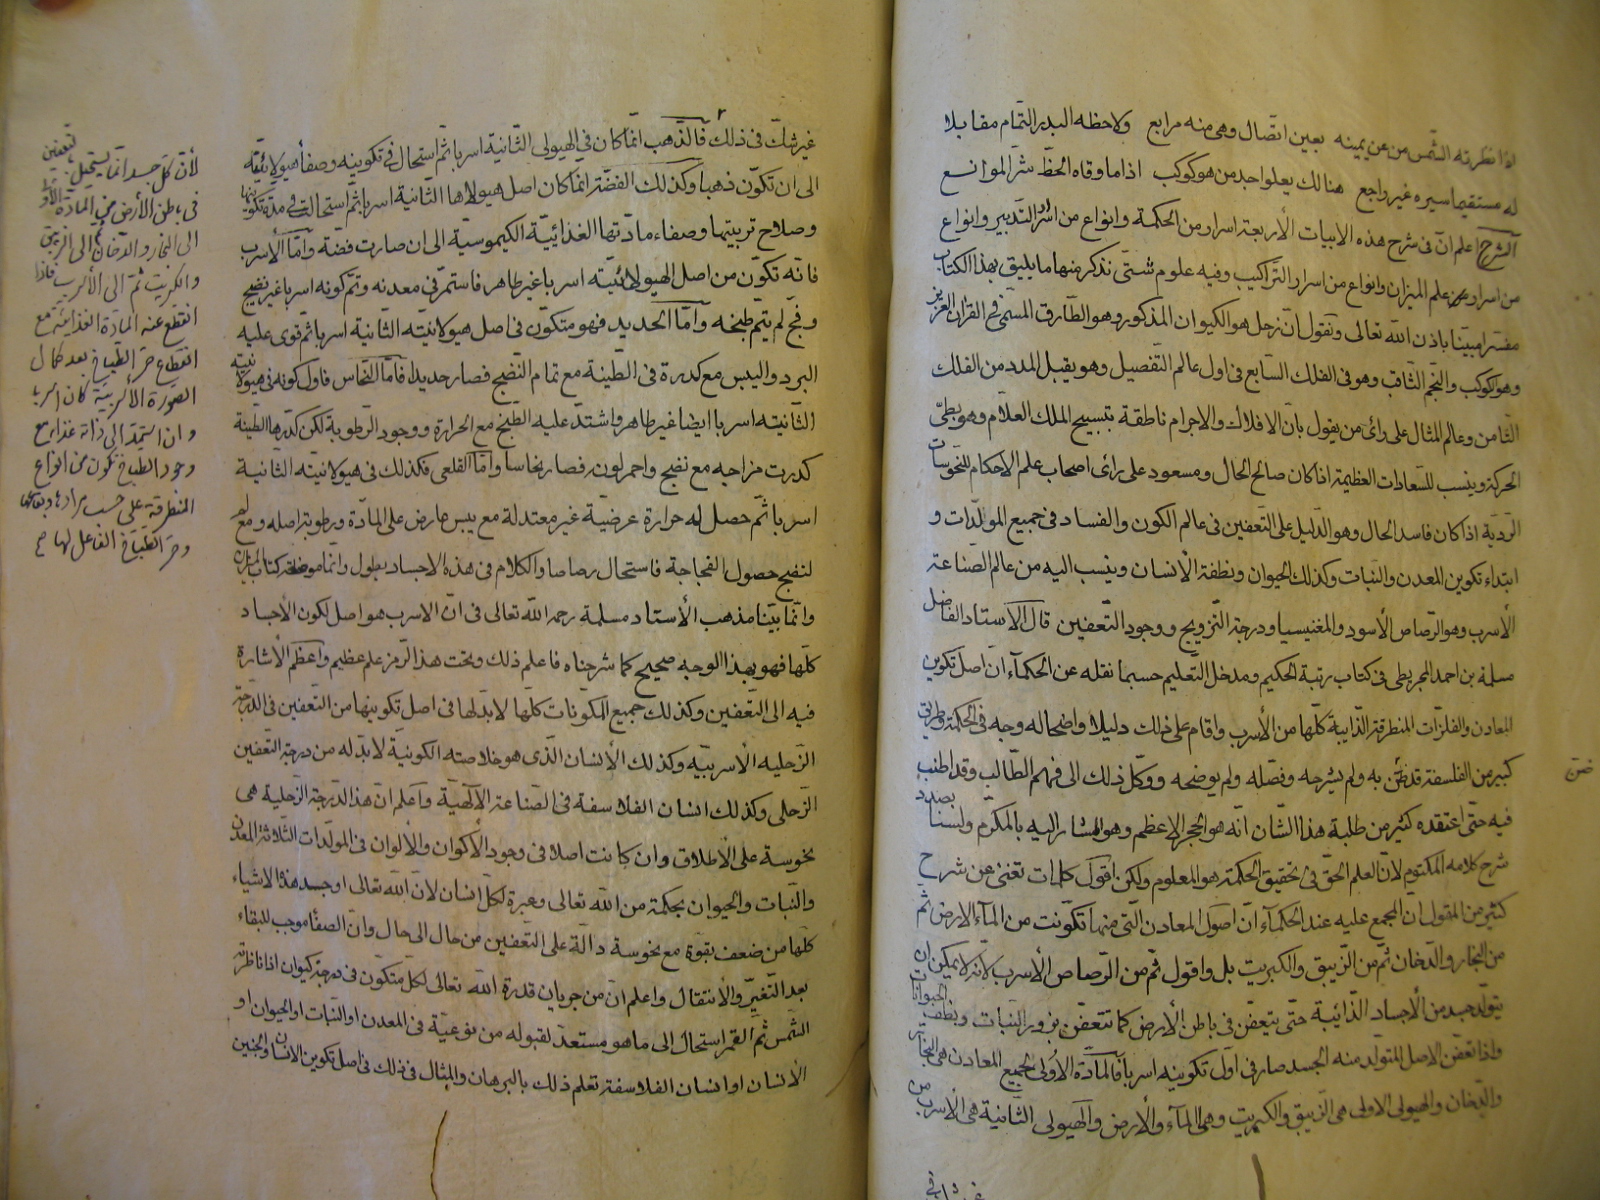 اذا نظرته الشمس من عن يمينه بعين اتصال وهي منه مرابع ولاحظه البدر التمام مقابلا
له مستقيما سيره غير راجع هنالك يعلوا جد من هو كوكب اذا ما وقاه الحظ شر الموانع
الشرح اعلم ان في شرح هذه الابيات الأربعة اسرار من الحكمة وانواع من اسرار التدبير وانواع
من اسرار علم الميزان وانواع من اسرار التراكيب وفيه علوم شتى نذكر منها ما يليق بهذا الكتاب
مفسرا مبينا باذن الله تعالى ونقول ان زحل هو الكيوان المذكور وهو الطارق المسمى في القرآن العزيز
وهو الكوكب والنجم الثاقب وهو في الفلك السابع في اول عالم التفصيل وهو يقبل المدد من الفلك
الثامن وعالم المثال على رائ من يقول بان الافلاك والاجرام ناطقة بتسبيح الملك العلام وهو بطئ
الحركة وينسب للسعادات العظيمة اذا كان صالح الحال ومسعود على رائ اصحاب علم الاحكام للنحوسات
الردية اذا كان فاسد الحال وهو الدليل على التعفين في عالم الكون والفساد في جميع المولدات و
ابتداء تكوين المعدن والنبات وكذلك الحيوان ونطفة الأنسان وينسب اليه من عالم الصناعة
الأسرب وهو الرصاص الأسود والمغنيسيا ودرجة التزويج ووجود التعفين قال الاستاد الفاضل
مسلمة بن احمد المجريطي في كتاب رتبة الحكيم ومدخل التعليم حسبما نقله عن الحكمآء ان اصل تكوين
المعادن والفلزات المنطرقة الذايبة كلها من الأسرب واقام على ذلك دليلا واضحا له وجه في الحكمة وطريق
كبير من الفلسفة قد ضن به ولم يشرحه وفصله ولم يوضحه ووكل ذلك الى فهم الطالب وقد اطنب
ضن
فيه حتى اعتقده كثير من طلبة هذا الشان انه هو الحجر الاعظم وهو المشار اليه بالمكرم ولسنا بصدد
شرح كلامه المكتوم لان العلم الحق في تحقيق الحكمة هو المعلوم ولكن اقول كلمات تغني عن شرح
كثير من المقول ان المجمع عليه عند الحكمآء ان اصول المعادن التي منها تكونت من المآء والارض ثم
من البخار والدخان ثم من الزيبق والكبريت بل واقول ثم من الرصاص الأسرب لانه لا يمكن ان
يتولد جسد من الأجساد الذائبة حتى يتعفن في باطن الأرض كما تتعفن بزور النبات ونطف الحيوانات
واذا تعفن الاصل المتولد منه الجسد صار في اول تكوينه اسربا فالمادة الأولى لجميع المعادن هي البخار
والدخان والهيولى الاولى هي الزيبق والكبريت وهي المآء والأرض والهيولى الثانية هي الأسرب من
غير شك في
غير شك في ذلك فالذهب انما كان في الهيولى الثانية اسربا ثم استحال في تكوينه وصفا هيولانيته
الى ان تكون ذهبا وكذلك الفضة انما كان اصل هيولاها الثانية اسربا ثم استحالت في مدة تكوينها
وصلاح تربيتها وصفاء مادتها الغذائية الكيموسية الى ان صارت فضة واما الأسرب
فانه تكون من اصل الهيولانيته اسربا غير طاهر فاستمر في معدنه وتم كونه اسربا غير نضيج
وفج لم يتم طبخه واما الحديد فهو متكون في اصل هيولانيته الثانية اسربا ثم قوى عليه
البرد واليبس مع كدرة في الطينة مع تمام النضج فصار حديدا فاما النحاس فاول كونه في هيولانيته
الثانيته اسربا ايضا غير طاهر واشتد عليه الطبخ مع الحرارة ووجود الرطوبة لكن كدرها الطينة
كدرت مزاجه مع نضج واحمر لونه فصار نحاسا واما القلعي فكذلك في هيولانيته الثانية
اسربا ثم حصل له حرارة عرضية غير معتدلة مع يبس عارض على المادة ورطوبة اصله ومع
لنضج حصول الفجاجة فاستحال رصاصا والكلام في هذه الاجساد يطول وانما موضعه كتاب
وانما بينا مذهب الأستاد مسلمة رحمه الله تعالى في ان الاسرب هو اصل لكون الأجساد
كلها فهو بهذا الوجه صحيح كما شرحناه فاعلم ذلك وتحت هذا الرمز علم عظيم واعظم الأشارة
فيه الى التعفين وكذلك جميع المكونات كلها لابد لها في اصل تكوينها من التعفين في الدرجة
الزحليه الأسربيه وكذلك الأنسان الذي هو خلاصته الكونية لابد له من درجة التعفين
الزحلي وكذلك انسان الفلاسفة في الصناعة الآلهية واعلم ان هذا الدرجة الزحلية هي
نحوسة على الأطلاق وان كانت اصلا في وجود الأكوان والألوان في المولدات الثلاثة المعدن
والنبات والحيوان بحكمة من الله تعالى وعبرة لكل انسان لان الله تعالى اوجد هذه الاشياء
كلها من ضعف بقوة مع نحوسة دالة على التعفين من حال الى حال وان الصفا موجب للبقاء
بعد التغير والأنتقال واعلم ان من جريان قدرة الله تعالى لكل متكون في درجة كيوان اذا ناظرته
الشمس ثم القمر استحال الى ما هو مستعد لقبوله من نوعية في المعدن او النبات او الحيوان او
الأنسان او انسان الفلاسفة تعلم ذلك بالبرهان والمثال في ذلك في اصل تكوين الانسان والجنين
لأن كل جسد انما يستحيل بتعفين
في باطن الأرض من المادة الأولى
الى البخار والدخان ثم الى الزيبق
والكبريت ثم الى الأسرب فاذا
انقطع عنه المادة الغذائية مع
انقطاع حر الطباخ بعد كمال
الصورة الأسربية كان اسربا
وان استمد الى ذاته غذاء مع
وجود الطباخ تكون من انواع
المنطرقة على حسب موادها وبقائها
وحر الطباخ الفاعل لها صح